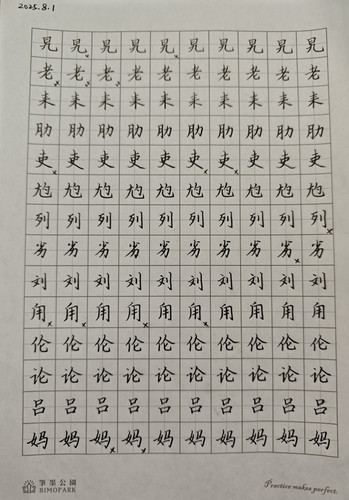 2025.8.1
旯 旯 旯 旯 旯 旯 旯 旯 旯 旯
老 老 老 老 老 老 老 老 老 老
耒 耒 耒 耒 耒 耒 耒 耒 耒 耒
肋 肋 肋 肋 肋 肋 肋 肋 肋 肋
吏 吏 吏 吏 吏 吏 吏 吏 吏 吏
尥 尥 尥 尥 尥 尥 尥 尥 尥 尥
列 列 列 列 列 列 列 列 列 列
劣 劣 劣 劣 劣 劣 劣 劣 劣 劣
刘 刘 刘 刘 刘 刘 刘 刘 刘 刘
甪 甪 甪 甪 甪 甪 甪 甪 甪 甪
伦 伦 伦 伦 伦 伦 伦 伦 伦 伦
论 论 论 论 论 论 论 论 论 论
吕 吕 吕 吕 吕 吕 吕 吕 吕 吕
妈 妈 妈 妈 妈 妈 妈 妈 妈 妈
筆墨公園
BIMOPARK
Practice makes perfect.